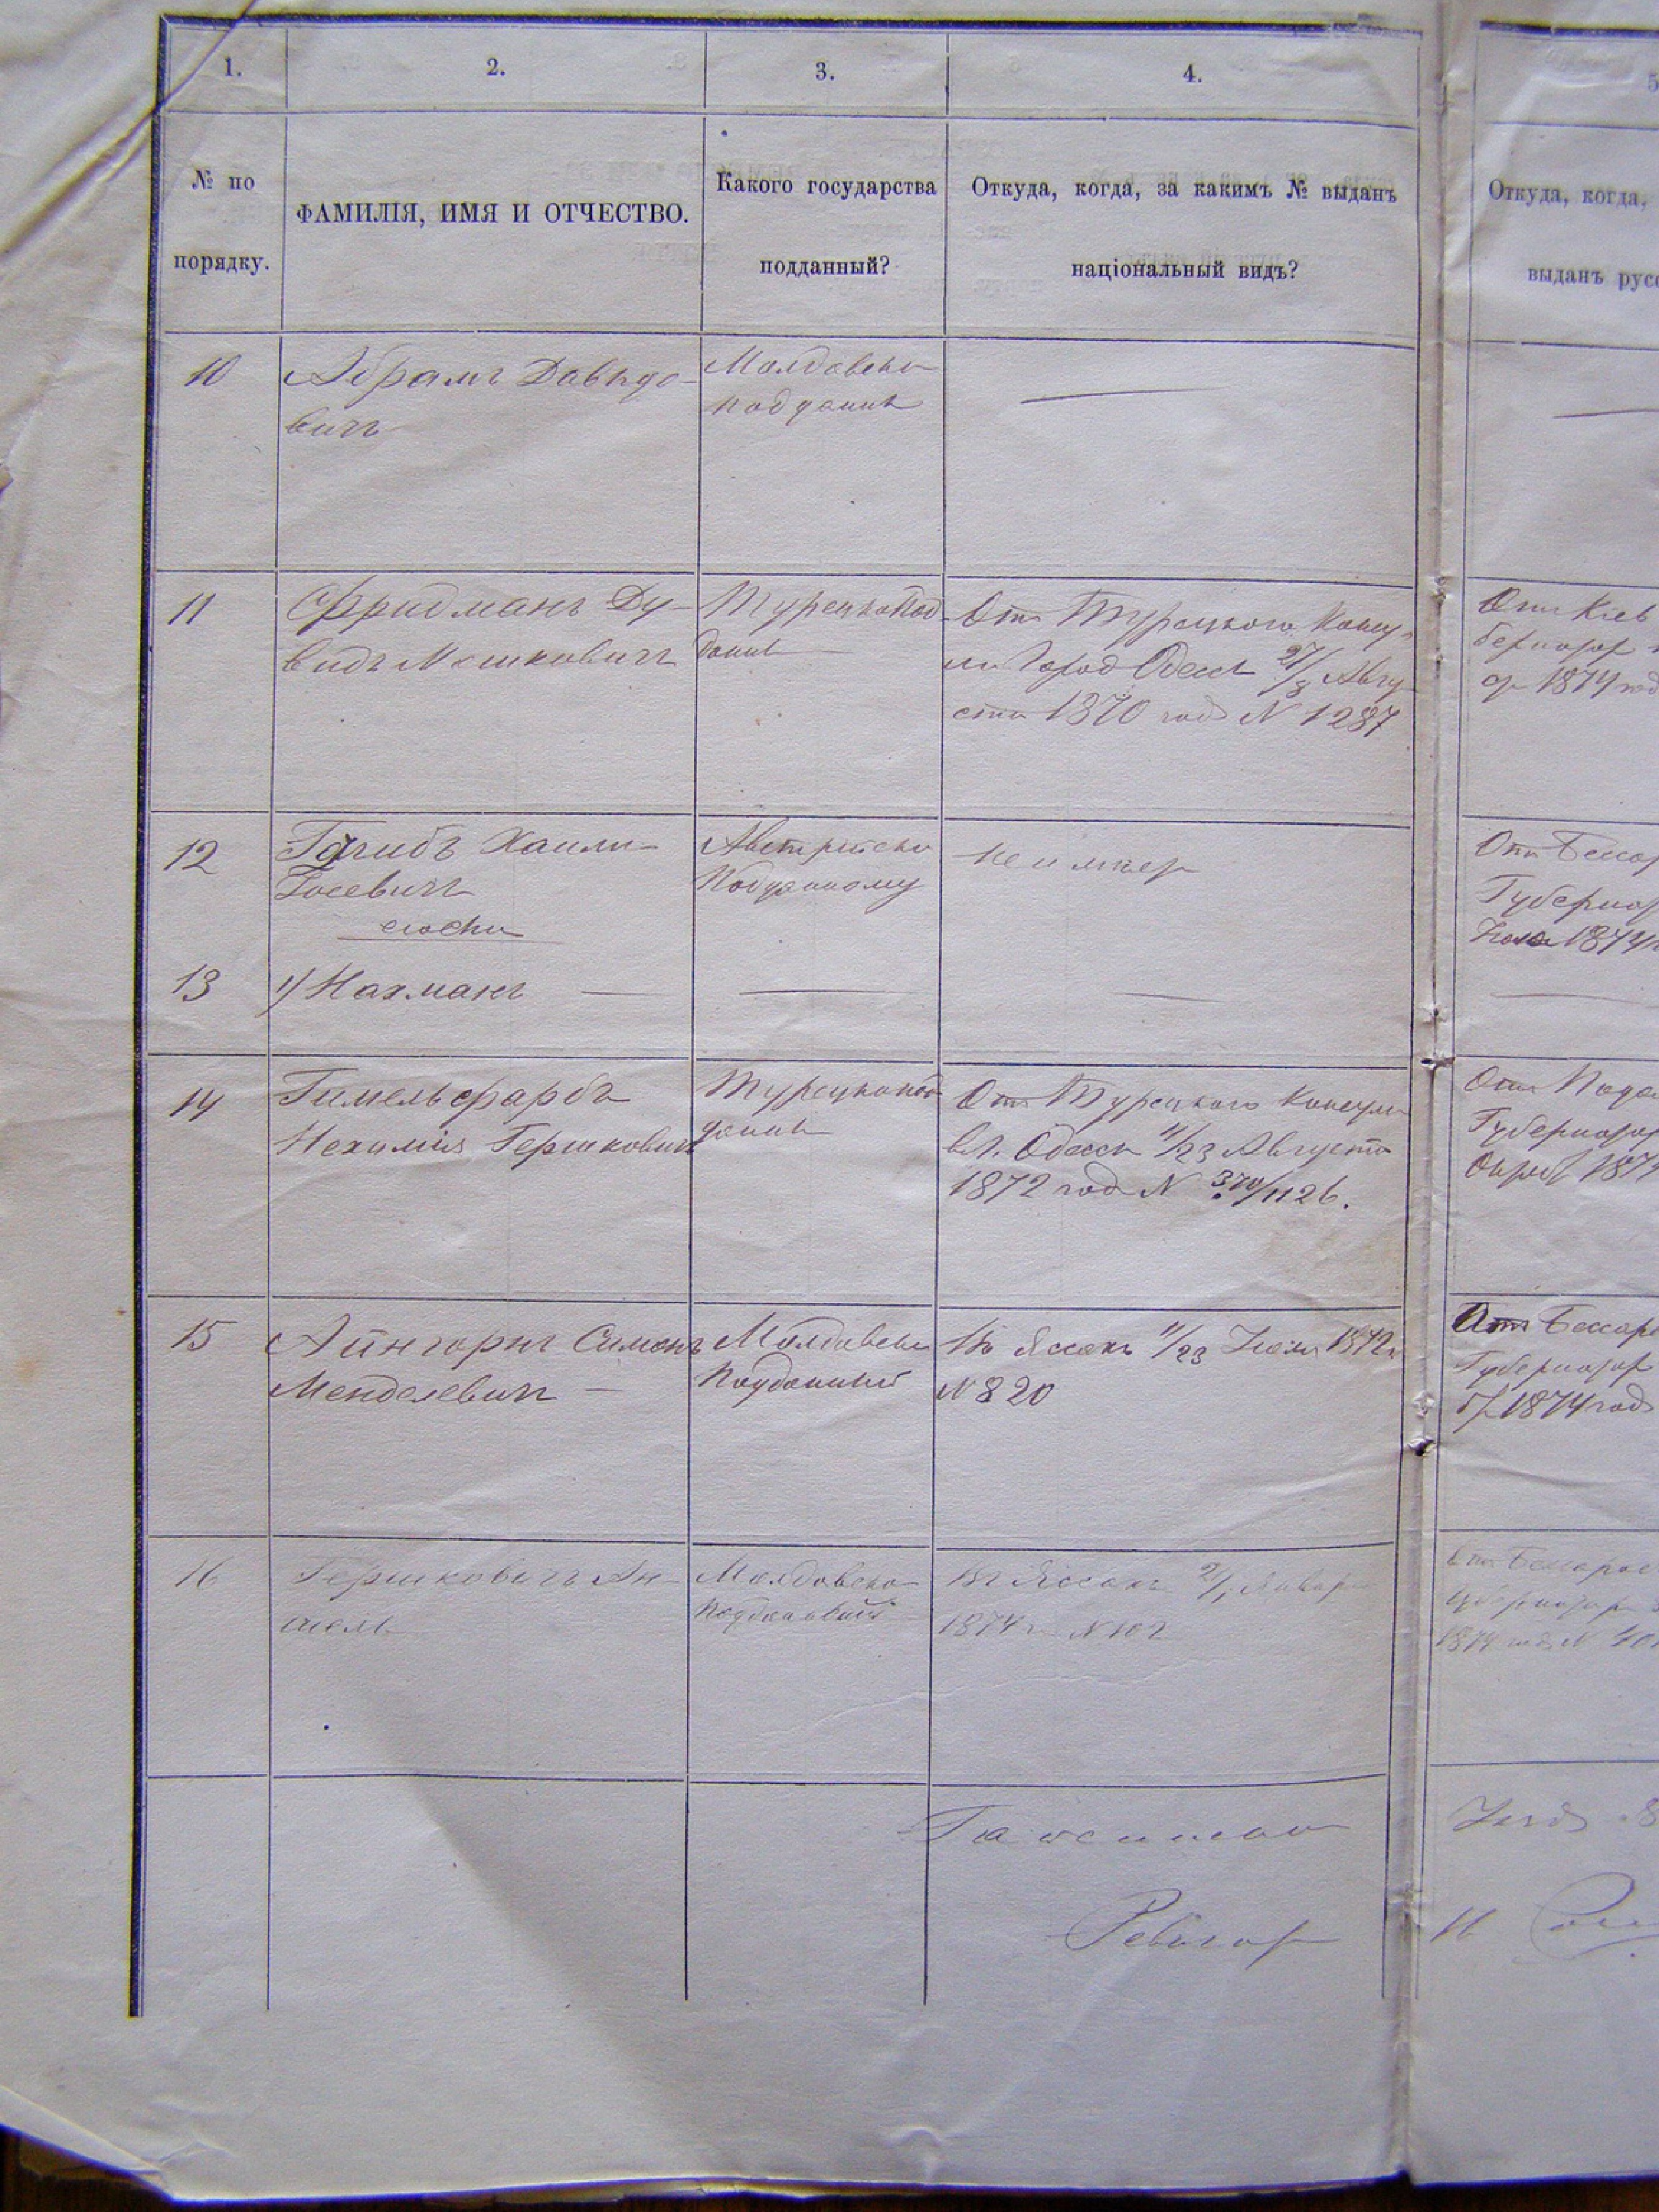 1.
2.
3.
4.
5
№ по
порядку.
ФАМИЛІЯ, ИМЯ И ОТЧЕСТВО.
Какого государства
подданный?
Откуда, когда, за какимъ № выданъ
національный видъ?
Откуда, когда,
выданъ русс
10
Абрамъ Давидо-
вичъ
Молдавско
подданн
11
Фридманъ Ду-
видъ Мошковичъ
Турецко Под-
данн
Отъ Турецкого Консу-
ла Город Одесы 27/8 Авгу-
ста 1870 года N 1287
Отъ Кіев
бернатор
1874 год
12
Хаимъ-
Іосевичъ
Австрійско
Подданному
не имѣет
Отъ Бессар
Губернат
1874
13
1) Нахманъ —
14
Гимельфарбъ
Нехимія Гершковичъ
Турецкопод
данн
Отъ Турецкого Консула
в г. Одесы 11/23 Августа
1872 года N 370/1126.
Отъ Подол
Губернатор
1874
15
Айнгорнъ Симонъ
Менделевичъ —
Молдавски
Подданный
Въ Яссахъ 11/23 1872 г
N 820
Отъ Бессара
Губернатор
1874 года
16
Гершковичъ Ан-
Молдавско
Въ Яссахъ Январ
1874 г N 102
Отъ Бессараб
1874 года N
Ревизор
16